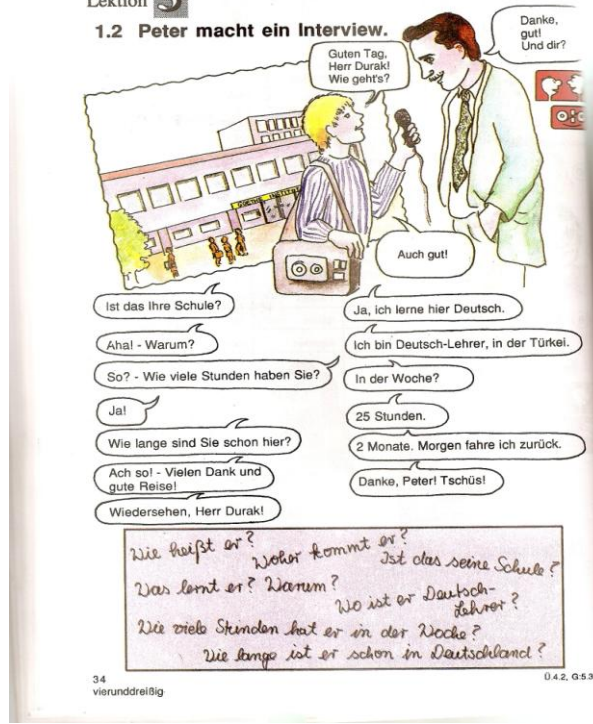 Lektion 5
1.2 Peter macht ein Interview.
Danke,
gut!
Und dir?
Guten Tag,
Herr Durak!
Wie geht's?
Auch gut!
Ist das Ihre Schule?
Ja, ich lerne hier Deutsch.
Aha! - Warum?
Ich bin Deutsch-Lehrer, in der Türkei.
So? - Wie viele Stunden haben Sie?
In der Woche?
Ja!
25 Stunden.
Wie lange sind Sie schon hier?
2 Monate. Morgen fahre ich zurück.
Ach so! - Vielen Dank und
gute Reise!
Danke, Peter! Tschüs!
Wiedersehen, Herr Durak!
Wie heißt er?
Woher kommt er?
Ist das seine Schule?
Was lernt er? Warum?
Wo ist er Deutsch-
Lehrer?
Wie viele Stunden hat er in der Woche?
Wie lange ist er schon in Deutschland?
34
vierunddreißig
Ü.4.2, G:5.3